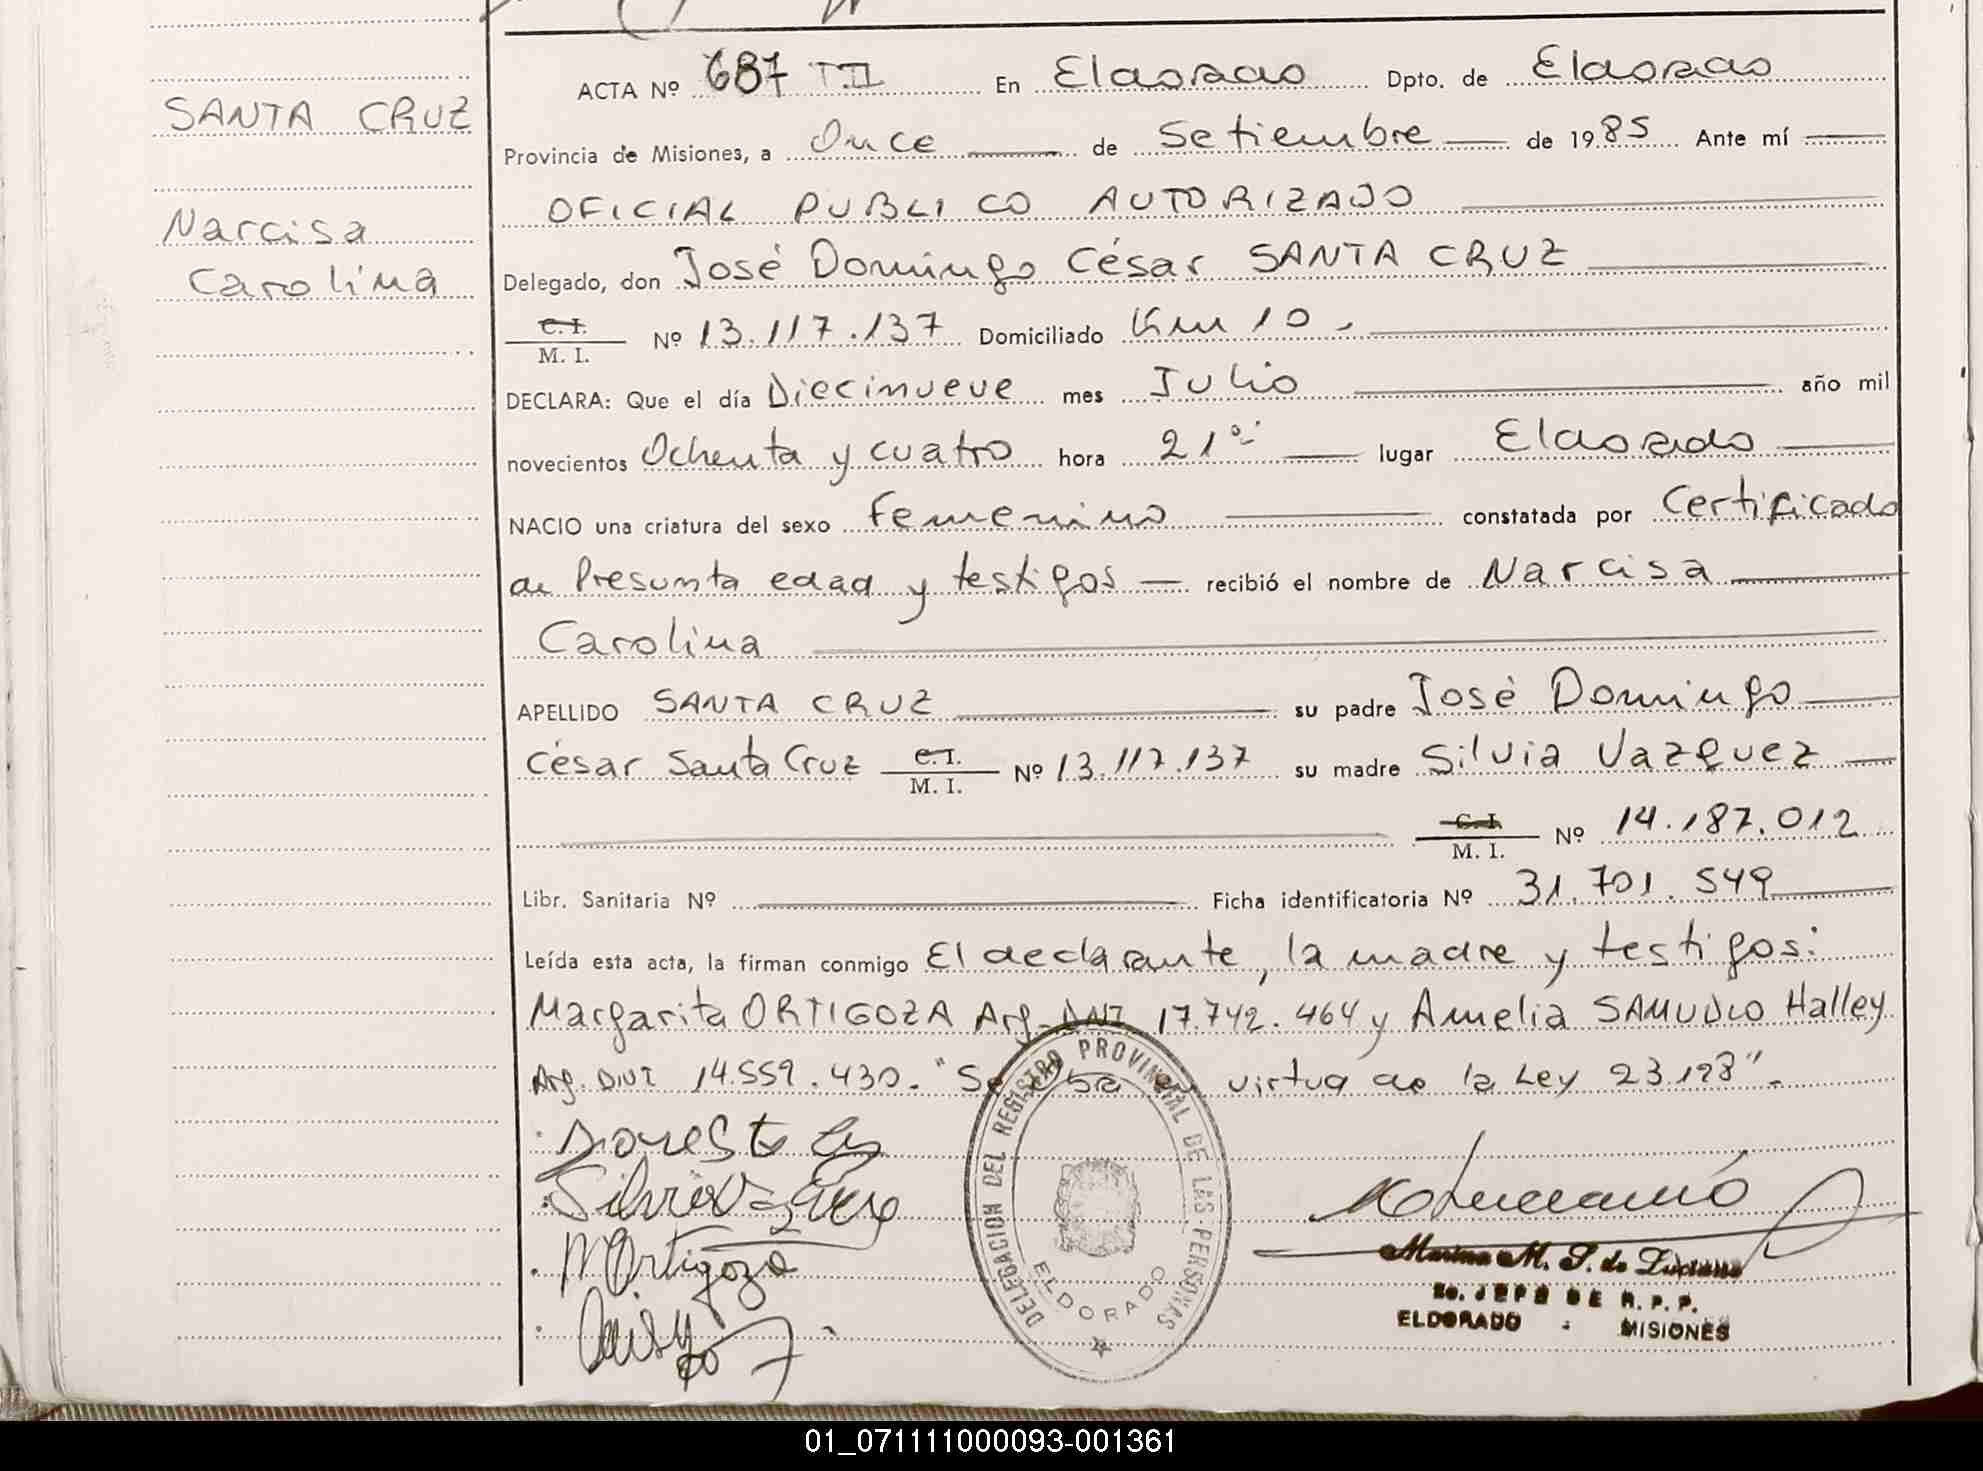 SANTA CRUZ
Narcisa
Carolina
ACTA Nº 687 T.II En Eldorado Dpto. de Eldorado
Provincia de Misiones, a Once de Setiembre de 1985 Ante mí
OFICIAL PUBLICO AUTORIZADO
Delegado, don José Domingo César SANTA CRUZ
C. I.
M. I. Nº 13.117.137 Domiciliado Km 10.
DECLARA: Que el día Diecinueve mes Julio año mil
novecientos Ochenta y cuatro hora 21 lugar Eldorado
NACIO una criatura del sexo Femenino constatada por Certificado
de Presunta edad y testigos recibió el nombre de Narcisa
Carolina
APELLIDO SANTA CRUZ su padre José Domingo
César Santa Cruz C. I. M. I. Nº 13.117.137 su madre Silvia Vazquez
C. I.
M. I. Nº 14.187.012
Libr. Sanitaria Nº Ficha identificatoria Nº 31.701.549
Leída esta acta, la firman conmigo El declarante, la madre y testigos:
Margarita ORTIGOZA Arg. DNI 17.742.464 y Amelia SAMUDIO Halley
Arg. DNI 14.559.430. "Se labra en virtud de la Ley 23.128".
Silvia Vazquez
M Ortigoza
DELEGACION DEL REGISTRO PROVINCIAL DE LAS PERSONAS
ELDORADO
Marina M. S. de Luciano
JEFE DE R. P. P.
ELDORADO - MISIONES
01_071111000093-001361